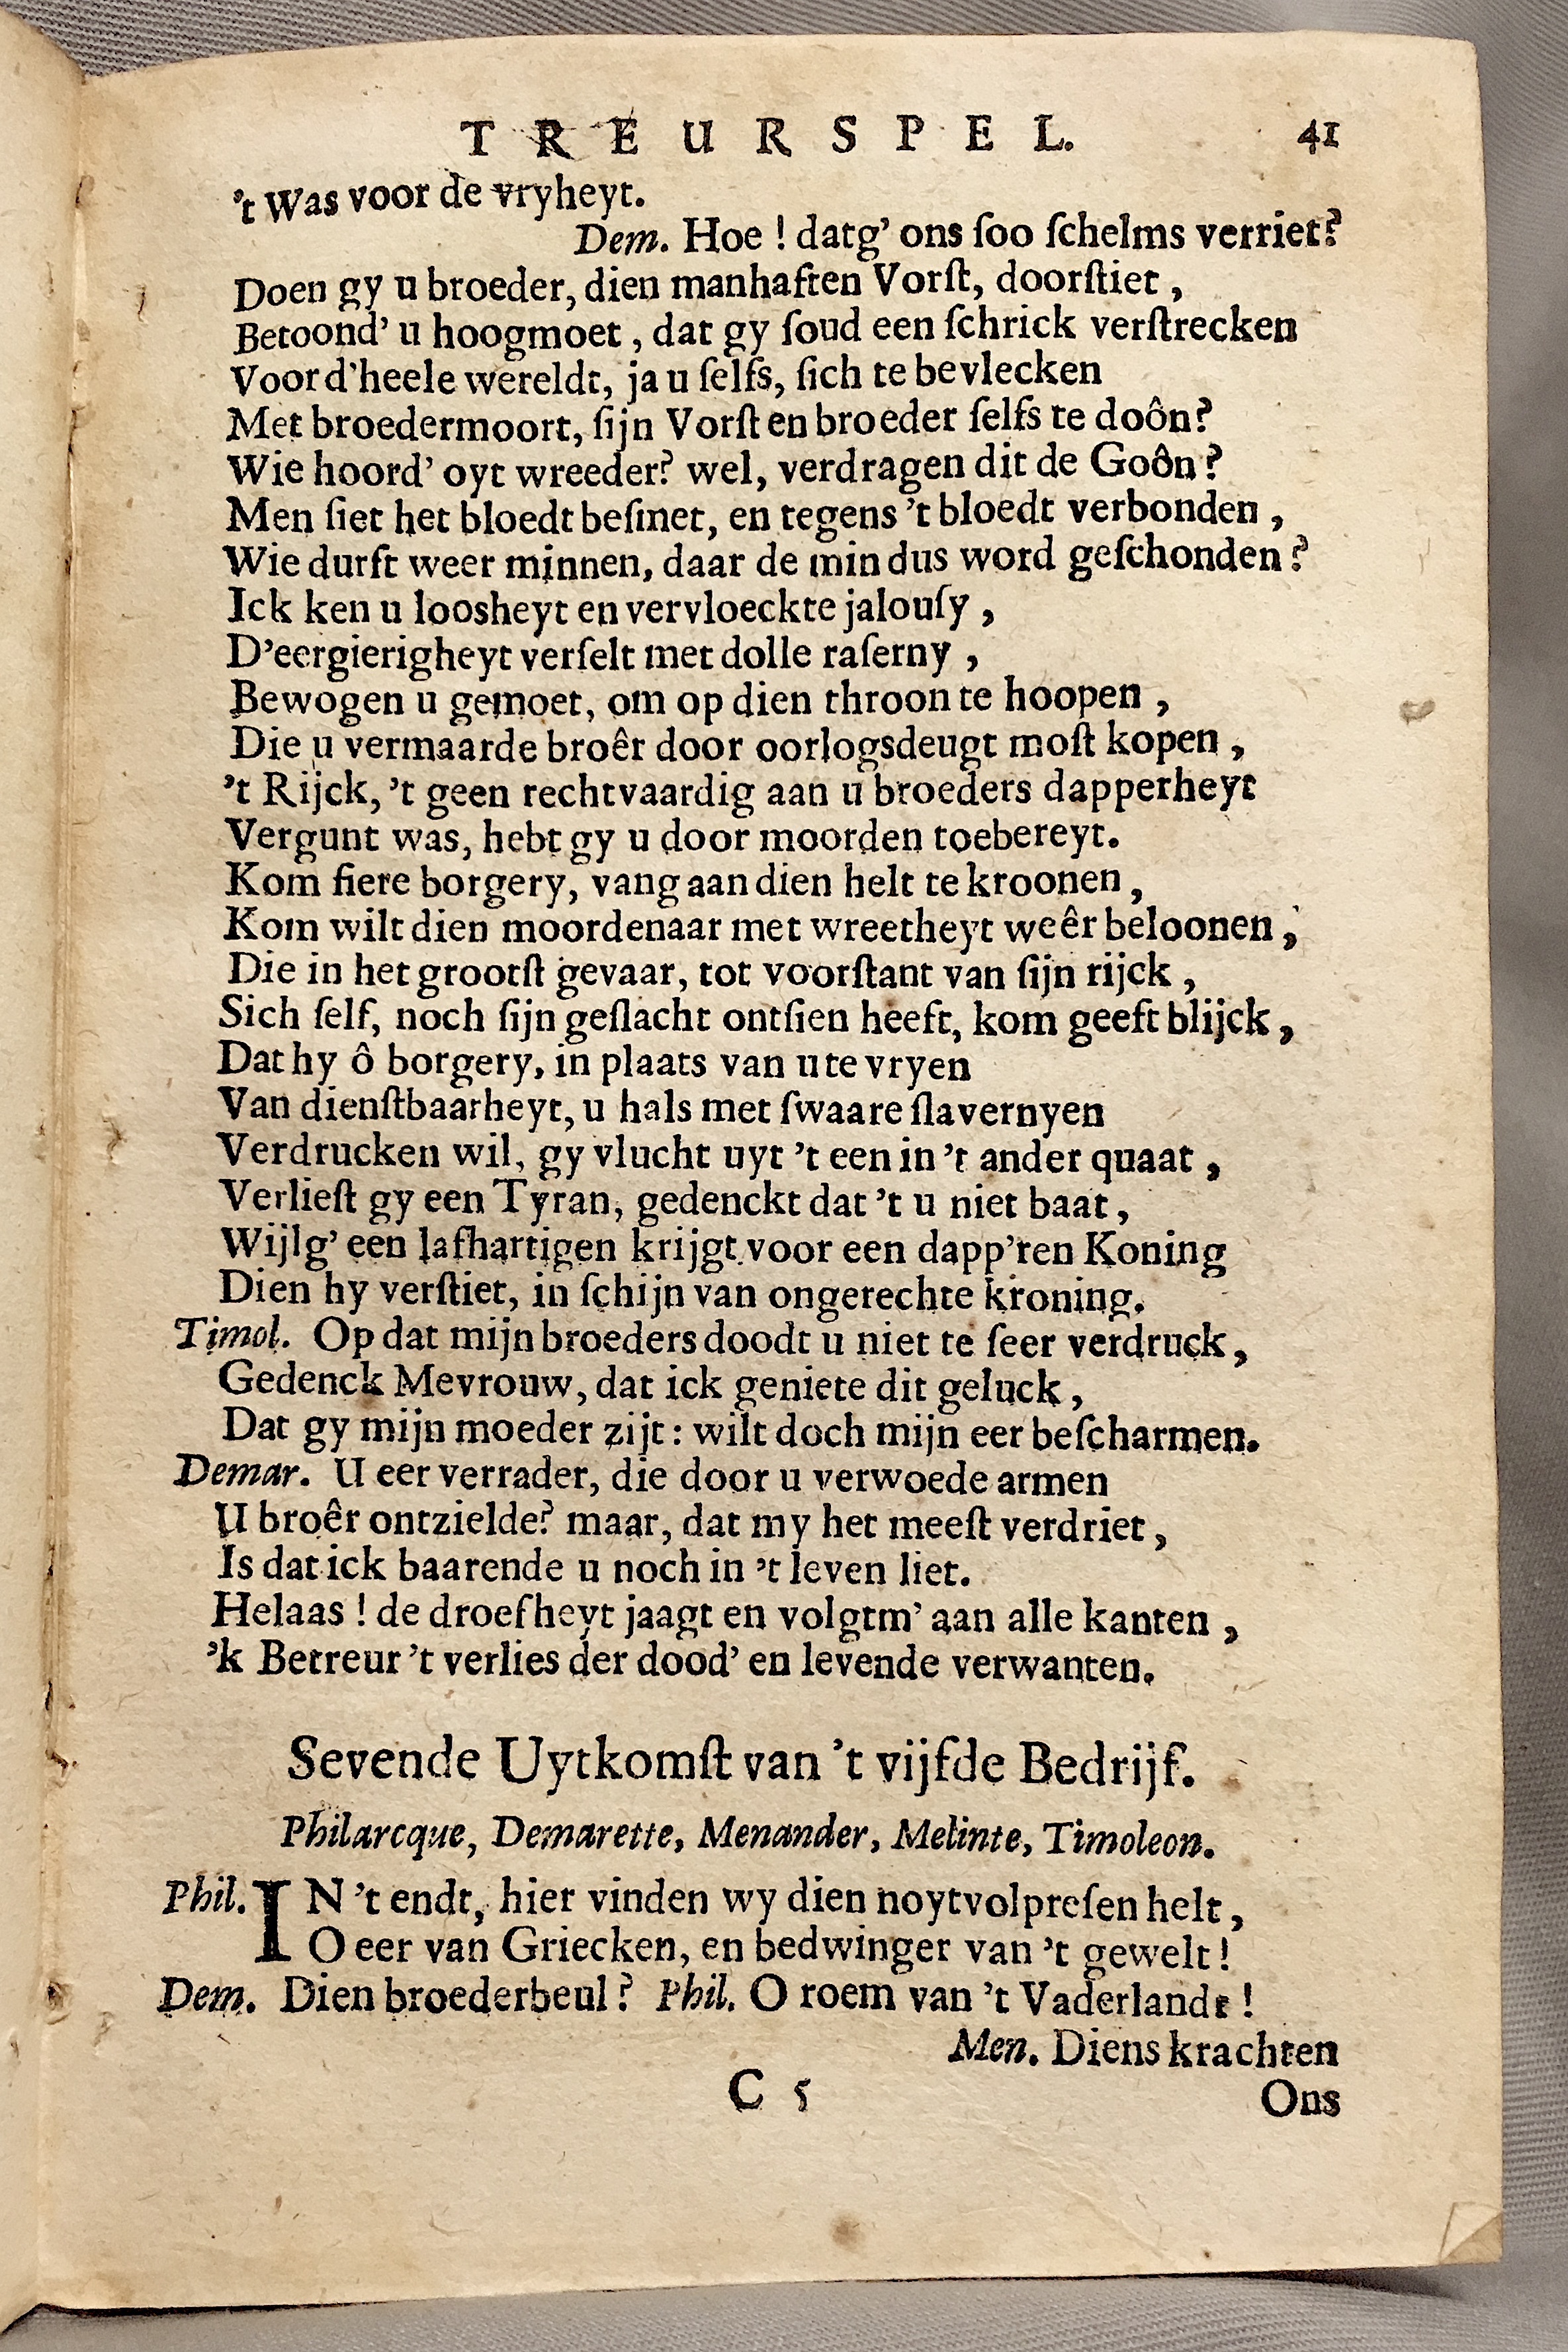 TREURSPEL. 41
't Was voor de vryheyt.
Dem. Hoe ! datg' ons ſoo ſchelms verriet?
Doen gy u broeder, dien manhaften Vorſt, doorſtiet,
Betoond' u hoogmoet, dat gy ſoud een ſchrick verſtrecken
Voor d'heele wereldt, ja u ſelfs, ſich te bevlecken
Met broedermoort, ſijn Vorſt en broeder ſelfs te doôn?
Wie hoord' oyt wreeder? wel, verdragen dit de Goôn?
Men ſiet het bloedt beſmet, en tegens 't bloedt verbonden,
Wie durft weer minnen, daar de min dus word geſchonden?
Ick ken u loosheyt en vervloeckte jalouſy,
D'eergierigheyt verſelt met dolle raſerny,
Bewogen u gemoet, om op dien throon te hoopen,
Die u vermaarde broêr door oorlogsdeugt moſt kopen,
't Rijck, 't geen rechtvaardig aan u broeders dapperheyt
Vergunt was, hebt gy u door moorden toebereyt.
Kom fiere borgery, vang aan dien helt te kroonen,
Kom wilt dien moordenaar met wreetheyt weêr beloonen,
Die in het grootſt gevaar, tot voorſtant van ſijn rijck,
Sich ſelf, noch ſijn geſlacht ontſien heeft, kom geeft blijck,
Dat hy ô borgery, in plaats van u te vryen
Van dienſtbaarheyt, u hals met ſwaare ſlavernyen
Verdrucken wil, gy vlucht uyt 't een in 't ander quaat,
Verlieſt gy een Tyran, gedenckt dat 't u niet baat,
Wijlg' een lafhartigen krijgt voor een dapp'ren Koning
Dien hy verſtiet, in ſchijn van ongerechte kroning.
Timol. Op dat mijn broeders doodt u niet te ſeer verdruck,
Gedenck Mevrouw, dat ick geniete dit geluck,
Dat gy mijn moeder zijt: wilt doch mijn eer beſcharmen.
Demar. U eer verrader, die door u verwoede armen
U broêr ontzielde? maar, dat my het meeſt verdriet,
Is dat ick baarende u noch in 't leven liet.
Helaas ! de droefheyt jaagt en volgtm' aan alle kanten,
'k Betreur 't verlies der dood' en levende verwanten.
Sevende Uytkomſt van 't vijfde Bedrijf.
Philarcque, Demarette, Menander, Melinte, Timoleon.
Phil. IN 't endt, hier vinden wy dien noytvolpreſen helt,
O eer van Griecken, en bedwinger van 't gewelt!
Dem. Dien broederbeul? Phil. O roem van 't Vaderlandt!
Men. Diens krachten
C 5 Ons